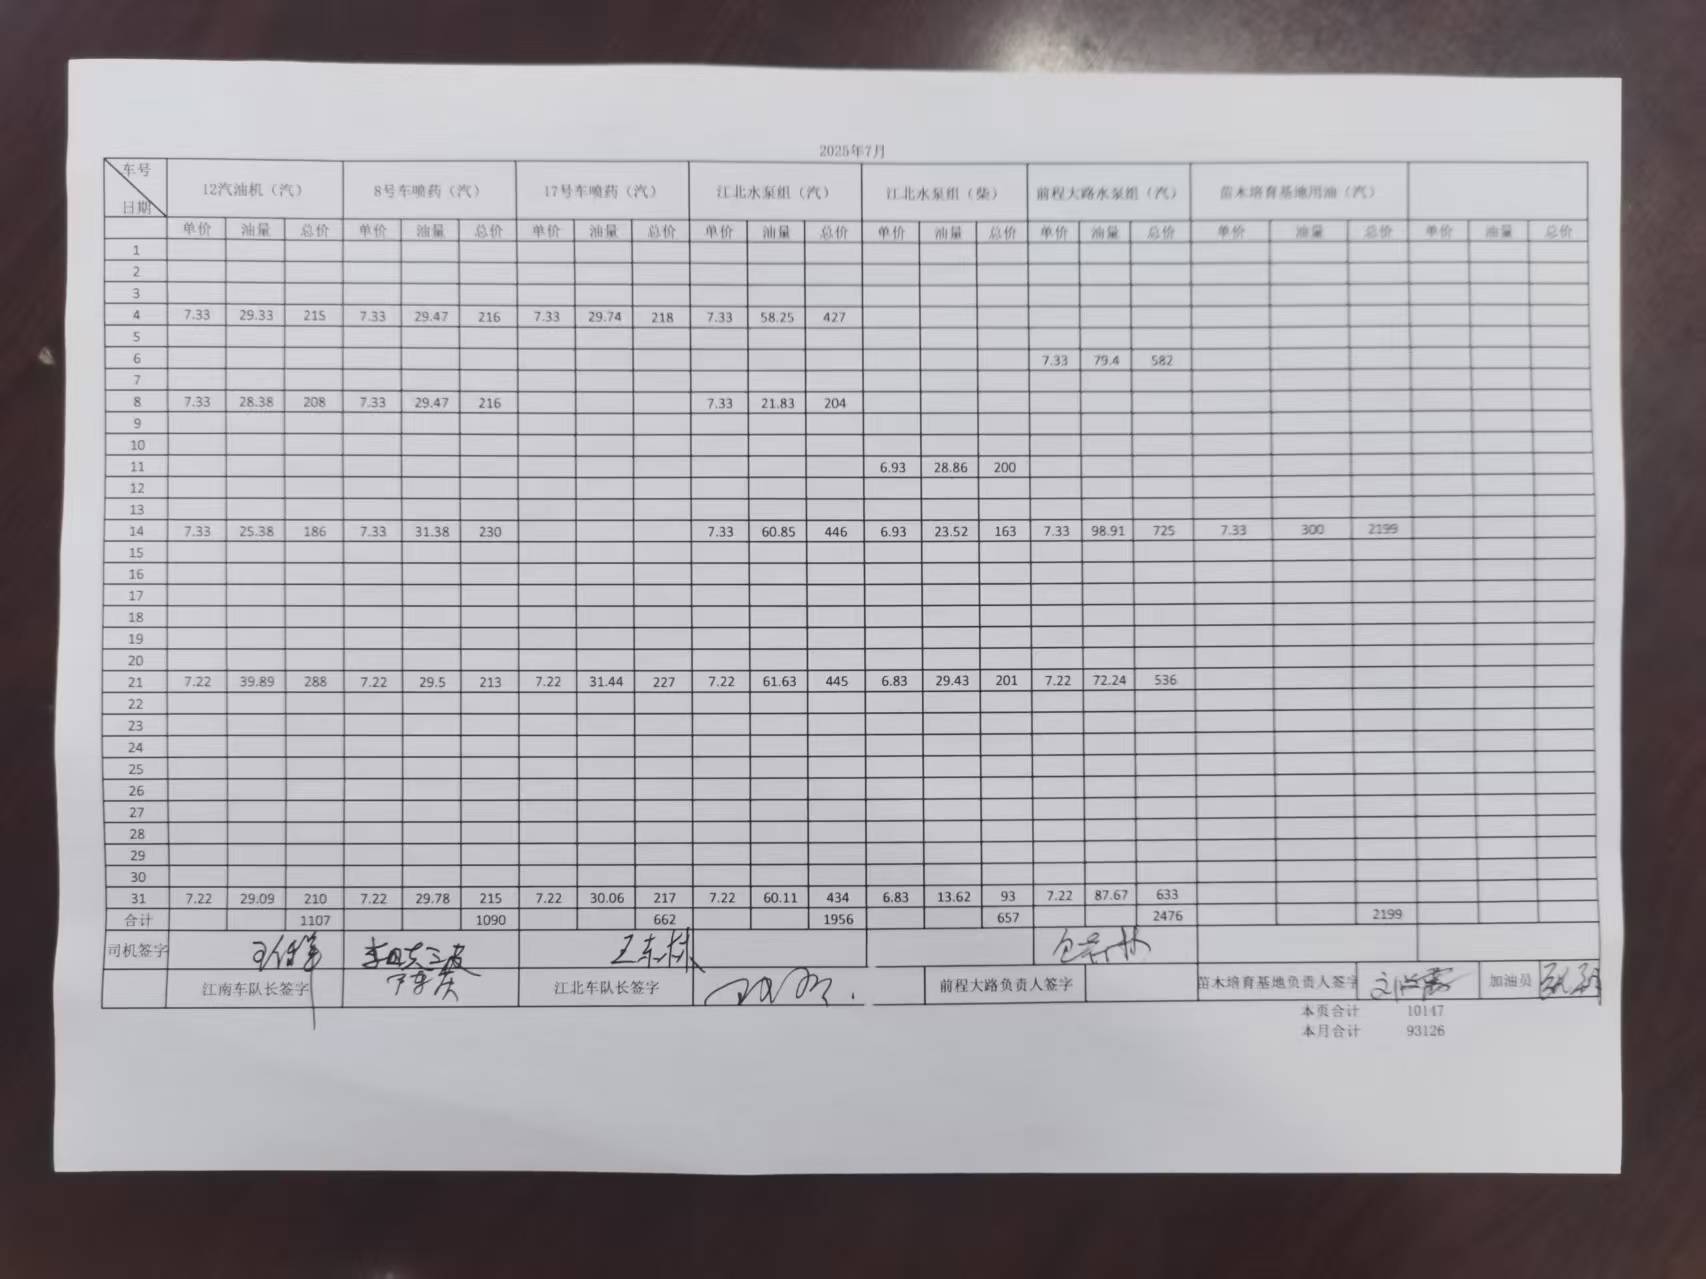 2025年7月
车号 12汽油机（汽） 8号车喷药（汽） 17号车喷药（汽） 江北水泵组（汽） 江北水泵组（柴） 前程大路水泵组（汽） 苗木培育基地用油（汽）
日期
单价 油量 总价 单价 油量 总价 单价 油量 总价 单价 油量 总价 单价 油量 总价 单价 油量 总价 单价 油量 总价 单价 油量 总价
1
2
3
4 7.33 29.33 215 7.33 29.47 216 7.33 29.74 218 7.33 58.25 427
5
6 7.33 79.4 582
7
8 7.33 28.38 208 7.33 29.47 216 7.33 21.83 204
9
10
11 6.93 28.86 200
12
13
14 7.33 25.38 186 7.33 31.38 230 7.33 60.85 446 6.93 23.52 163 7.33 98.91 725 7.33 300 2199
15
16
17
18
19
20
21 7.22 39.89 288 7.22 29.5 213 7.22 31.44 227 7.22 61.63 445 6.83 29.43 201 7.22 72.24 536
22
23
24
25
26
27
28
29
30
31 7.22 29.09 210 7.22 29.78 215 7.22 30.06 217 7.22 60.11 434 6.83 13.62 93 7.22 87.67 633
合计 1107 1090 662 1956 657 2476 2199
司机签字
江南车队长签字 江北车队长签字 前程大路负责人签字 苗木培育基地负责人签字 加油员
本页合计 10147
本月合计 93126